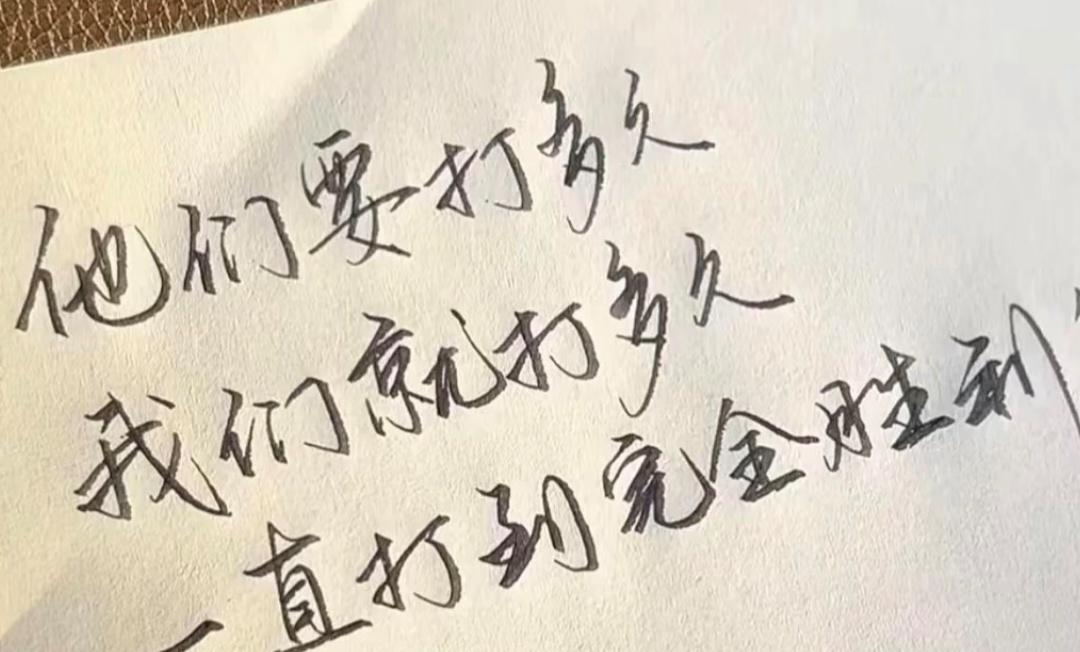 他们要打多久
我们就打多久
一直打到完全胜利